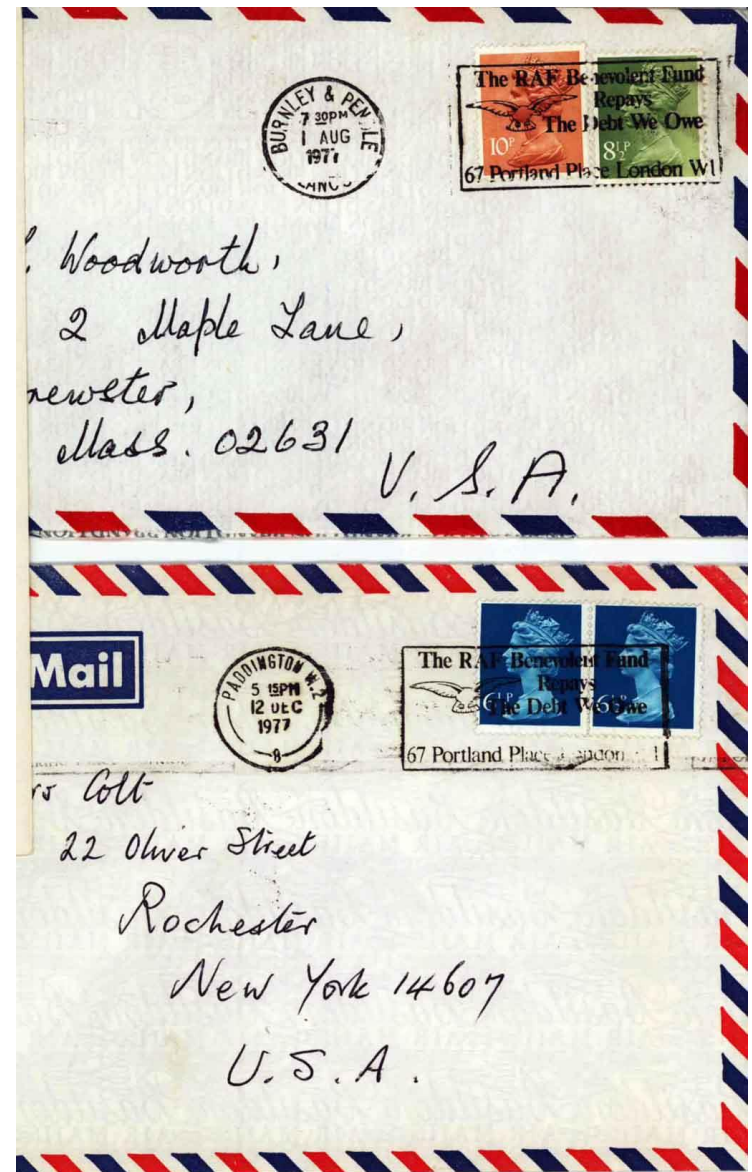 BURNLEY & PENDLE
7 30PM
1 AUG
1977
LANCS
The RAF Benevolent Fund
Repays
The Debt We Owe
67 Portland Place London W1
10P
8½P
Woodworth,
2 Maple Lane,
rewster,
Mass. 02631
U.S.A.
Mail
PADDINGTON W.2
5 15PM
12 DEC
1977
8
The RAF Benevolent Fund
Repays
The Debt We Owe
67 Portland Place London
6½P
6½P
rs Colt
22 Oliver Street
Rochester
New York 14607
U.S.A.